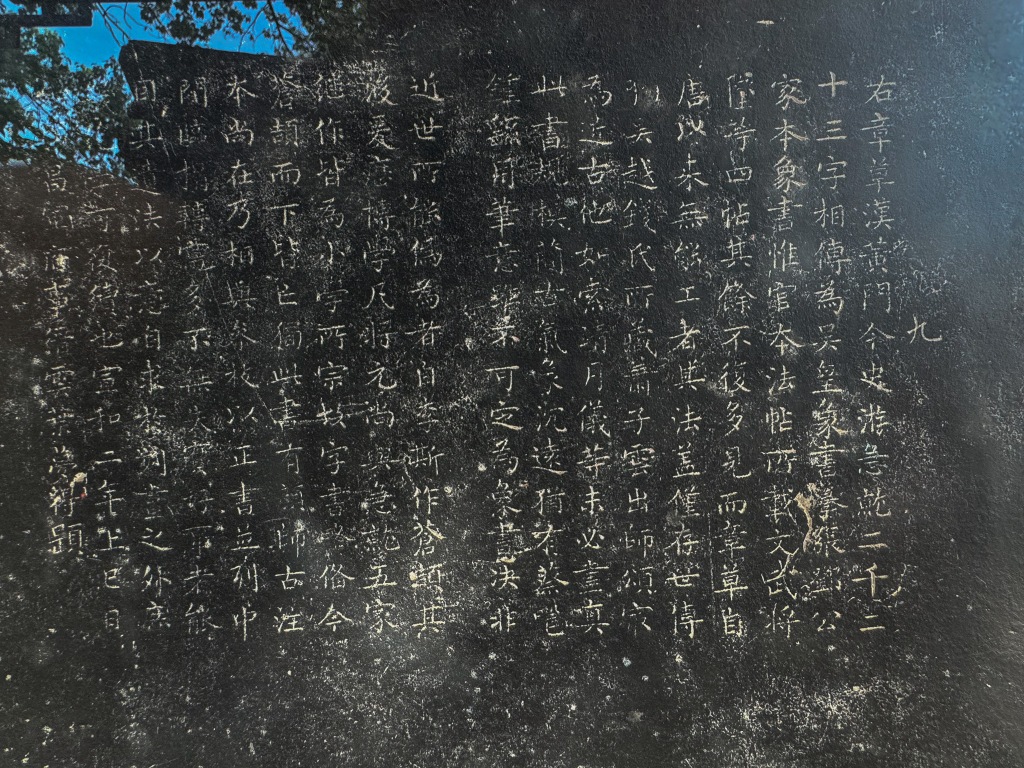 九
右章草漢黃門令史游急就二千二
十三字相傳為吳皇象書摹張鄧公
家本象書惟官本法帖所載文武將
等四帖其餘不復多見而章草自
唐以來無能工者其法蓋僅存世傳
越錢氏所藏蕭子雲出師頌
為近古他如索靖月儀等未必盡真
此書規模簡古氣象沉遠猶有蔡邕
鍾繇用筆意雖不可定為象書決非
近世所能偽為者自李斯作蒼頡其
後爰歷博學凡將元尚與急就五家
繼作皆為小學所宗故字書略備今
蒼頡而下皆亡獨此書有顏師古注
本尚在乃相與參校以正書並列中
間臨搨轉寫多不無失實好能
因其遺法以意自求於刻畫之外庶
可復得也宣和二年上巳日
昌軍府事葉夢得題